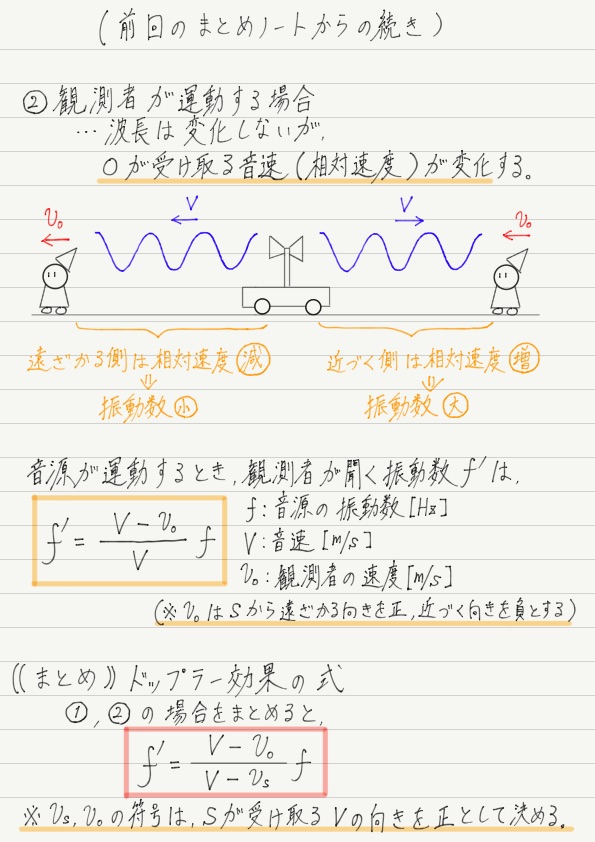 (前回のまとめノートからの続き)
② 観測者が運動する場合
… 波長は変化しないが,
Oが受け取る音速(相対速度)が変化する。
v₀
V
V
v₀
遠ざかる側は相対速度減
⇓
振動数小
近づく側は相対速度増
⇓
振動数大
音源が運動するとき, 観測者が聞く振動数 f′は,
f′ = (V − v₀)/V f
f : 音源の振動数 [Hz]
V : 音速 [m/s]
v₀ : 観測者の速度 [m/s]
(※ v₀ は S から遠ざかる向きを正, 近づく向きを負とする)
《まとめ》ドップラー効果の式
①, ② の場合をまとめると,
f′ = (V − v₀)/(V − vs) f
※ vs, v₀ の符号は, S が受け取る V の向きを正として決める。